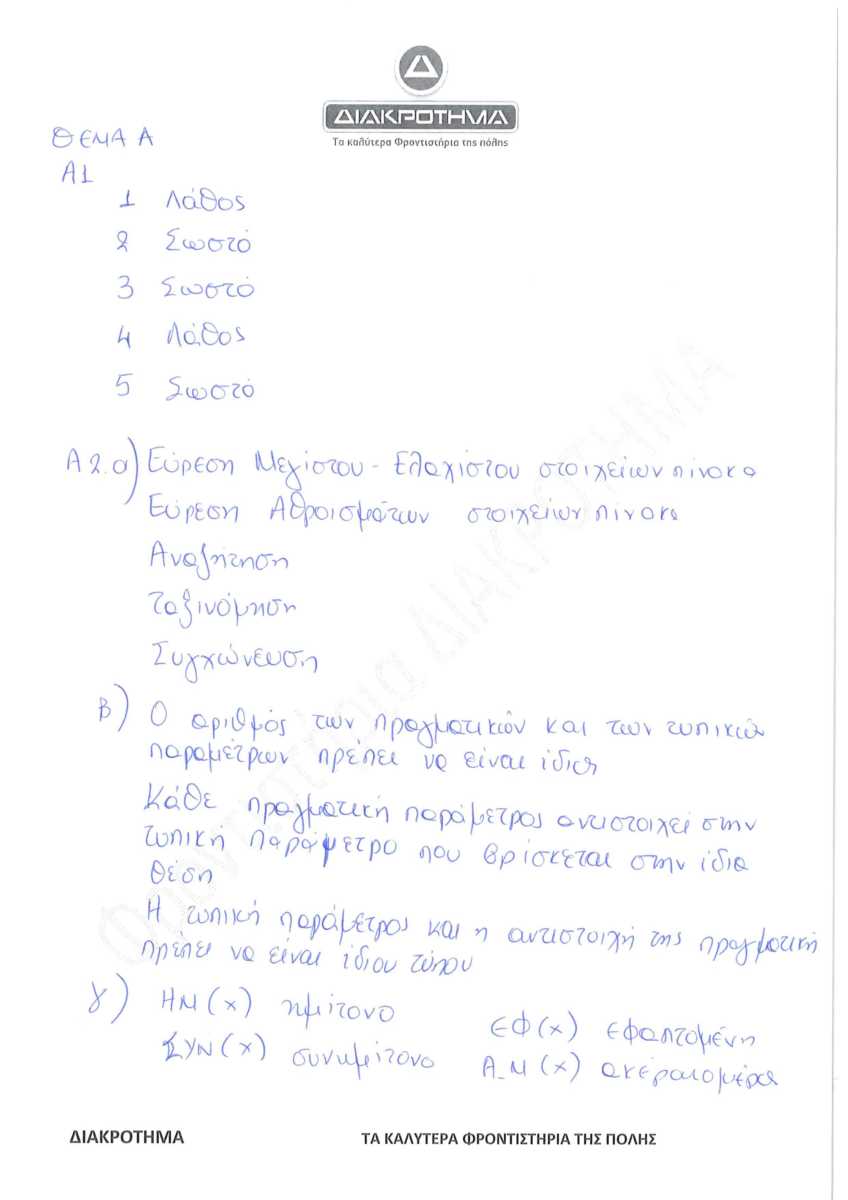 ΔΙΑΚΡΟΤΗΜΑ
Τα καλύτερα Φροντιστήρια της πόλης
ΘΕΜΑ Α
Α1
1 Λάθος
2 Σωστό
3 Σωστό
4 Λάθος
5 Σωστό
Α2.α) Εύρεση Μεγίστου - Ελαχίστου στοιχείων πίνακα
Εύρεση Αθροισμάτων στοιχείων πίνακα
Αναζήτηση
Ταξινόμηση
Συγχώνευση
β) Ο αριθμός των πραγματικών και των τυπικών
παραμέτρων πρέπει να είναι ίδιος
Κάθε πραγματική παράμετρος αντιστοιχεί στην
τυπική παράμετρο που βρίσκεται στην ίδια
θέση
Η τυπική παράμετρος και η αντιστοιχή της πραγματική
πρέπει να είναι ίδιου τύπου
γ) ΗΜ(χ) ημίτονο ΕΦ(χ) εφαπτομένη
ΣΥΝ(χ) συνημίτονο Α_Μ(χ) ακέραιο μέρος
Φροντιστήρια ΔΙΑΚΡΟΤΗΜΑ
ΔΙΑΚΡΟΤΗΜΑ ΤΑ ΚΑΛΥΤΕΡΑ ΦΡΟΝΤΙΣΤΗΡΙΑ ΤΗΣ ΠΟΛΗΣ